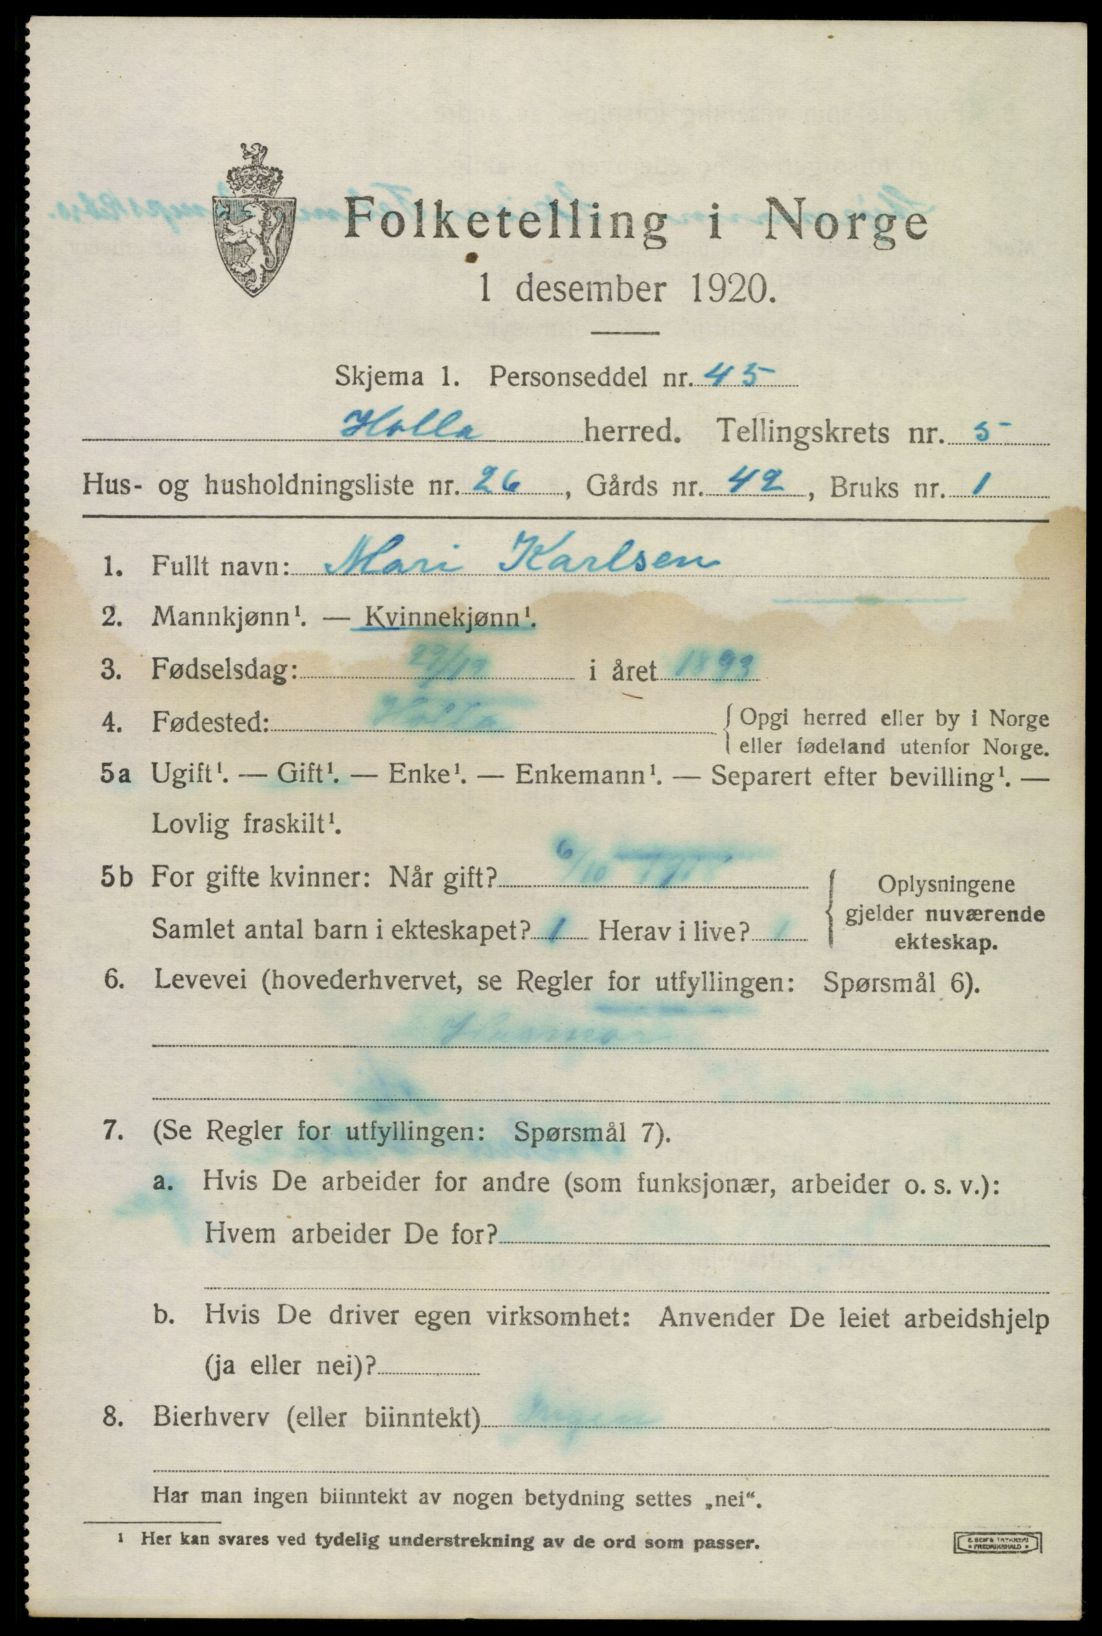 Folketelling i Norge
1 desember 1920.
Skjema 1. Personseddel nr. 45
Holla herred. Tellingskrets nr. 5
Hus- og husholdningsliste nr. 26, Gårds nr. 42, Bruks nr. 1
1. Fullt navn: Mari Karlsen
2. Mannkjønn¹. — Kvinnekjønn¹.
3. Fødselsdag: i året 1893
4. Fødested: Holla { Opgi herred eller by i Norge
eller fødeland utenfor Norge.
5a Ugift¹. — Gift¹. — Enke¹. — Enkemann¹. — Separert efter bevilling¹. —
Lovlig fraskilt¹.
5b For gifte kvinner: Når gift? 6/10
Samlet antal barn i ekteskapet? 1 Herav i live? 1
{ Oplysningene
gjelder nuværende
ekteskap.
6. Levevei (hovederhvervet, se Regler for utfyllingen: Spørsmål 6).
Husmor
7. (Se Regler for utfyllingen: Spørsmål 7).
a. Hvis De arbeider for andre (som funksjonær, arbeider o. s. v.):
Hvem arbeider De for?
b. Hvis De driver egen virksomhet: Anvender De leiet arbeidshjelp
(ja eller nei)?
8. Bierhverv (eller biinntekt) Ingen
Har man ingen biinntekt av nogen betydning settes „nei“.
¹ Her kan svares ved tydelig understrekning av de ord som passer.
FREDRIKSHALD